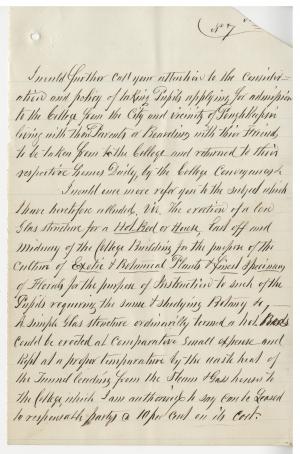 I would further call your attention to the consider-
ation and policy of taking Pupils applying for admission
to the College from the City and vicinity of Poughkeepsie
living with their Parents or Boarding with their friends,
to be taken from & to the College and returned to their
respective Homes Daily, by the College Conveyances &
I would once more refer you to the subject which
I have heretofore alluded, Viz. The erection of a low
Glass structure for a Hot Bed or House, East off and
midway of the College Building for the purpose of the
culture of Exotic & Botanical Plants & finest Specimens
of Florids for the purpose of Instruction to such of the
Pupils requiring the same & studying Botany &c,
A simple Glass structure ordinarily termed a hot Beds
could be erected at Comparative Small expense and
kept at a proper temperature by the waste heat of
the Tunnel leading from the Steam & Gass houses to
the College which I am authorised to say can be Leased
to responsable party @ 10 per Cent on its Cost.